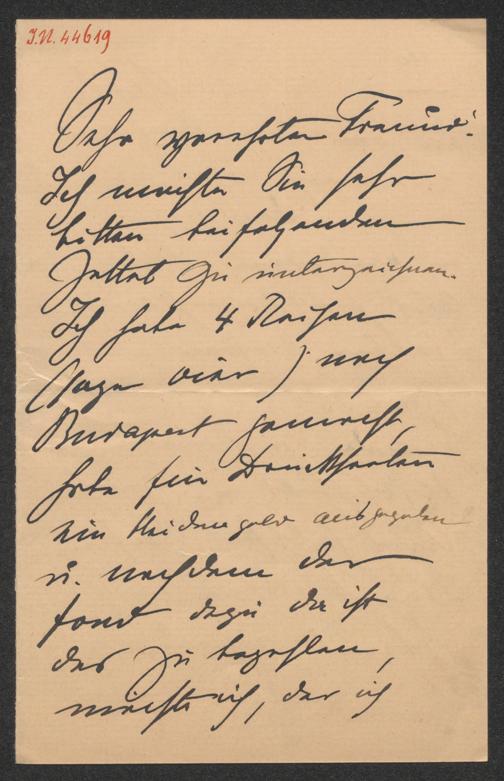 I.N. 44619
Sehr verehrter Freund!
Ich möchte Sie sehr
bitten beifolgenden
Zettel zu unterzeichnen.
Ich habe 4 Reisen
(sage vier) nach
Budapest gemacht,
habe für Drucksorten
ein Heidengeld ausgegeben
u. nachdem der
Fond dazu da ist
das zu bezahlen,
möchte ich, der ich